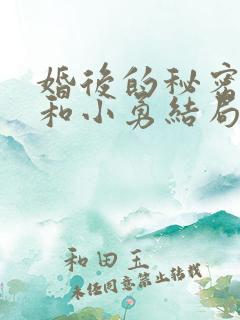 婚後的秘密
和小勇結局
和田玉
未经同意禁止转载